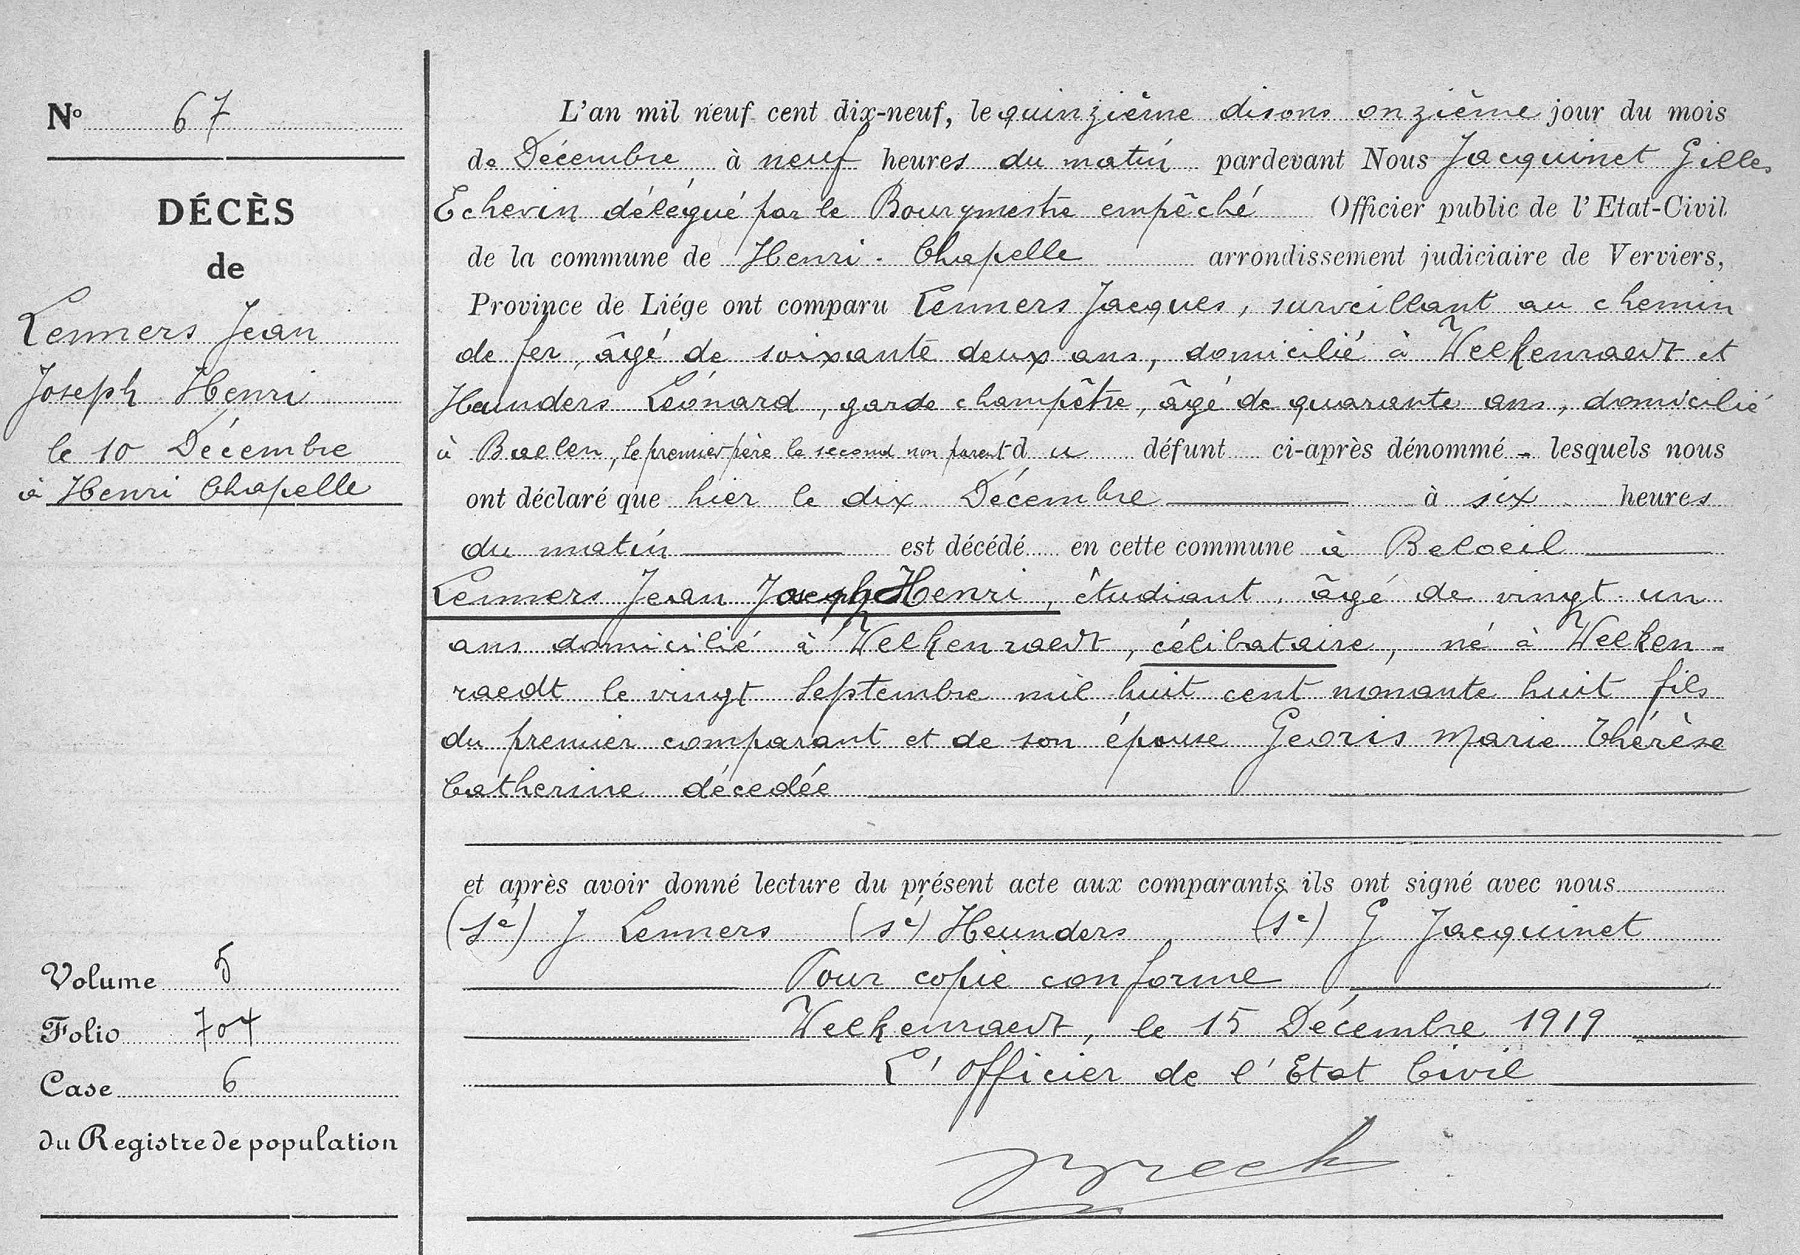 N° 67
DÉCÈS
de
Lenners Jean
Joseph Henri
le 10 Décembre
à Henri Chapelle
Volume 5
Folio 704
Case 6
du Registre de population
L'an mil neuf cent dix-neuf, le quinzième disons onzième jour du mois
de Décembre à neuf heures du matin pardevant Nous Jacquinet Gilles
Echevin délégué par le Bourgmestre empêché Officier public de l'Etat-Civil
de la commune de Henri-Chapelle arrondissement judiciaire de Verviers,
Province de Liége ont comparu Lenners Jacques, surveillant au chemin
de fer, âgé de soixante deux ans, domicilié à Welkenraedt et
Heunders Léonard, garde champêtre, âgé de quarante ans, domicilié
à Baelen, le premier père le second non parent du défunt ci-après dénommé - lesquels nous
ont déclaré que hier le dix Décembre à six heures
du matin est décédé en cette commune à Beloeil
Lenners Jean Joseph Henri, étudiant, âgé de vingt un
ans domicilié à Welkenraedt, célibataire, né à Welken-
raedt le vingt Septembre mil huit cent nonante huit fils
du premier comparant et de son épouse Georis Marie Thérèse
Catherine décedée
et après avoir donné lecture du présent acte aux comparants ils ont signé avec nous
(sé) J Lenners (sé) Heunders (sé) G Jacquinet
Pour copie conforme
Welkenraedt, le 15 Décembre 1919
L'officier de l'Etat Civil